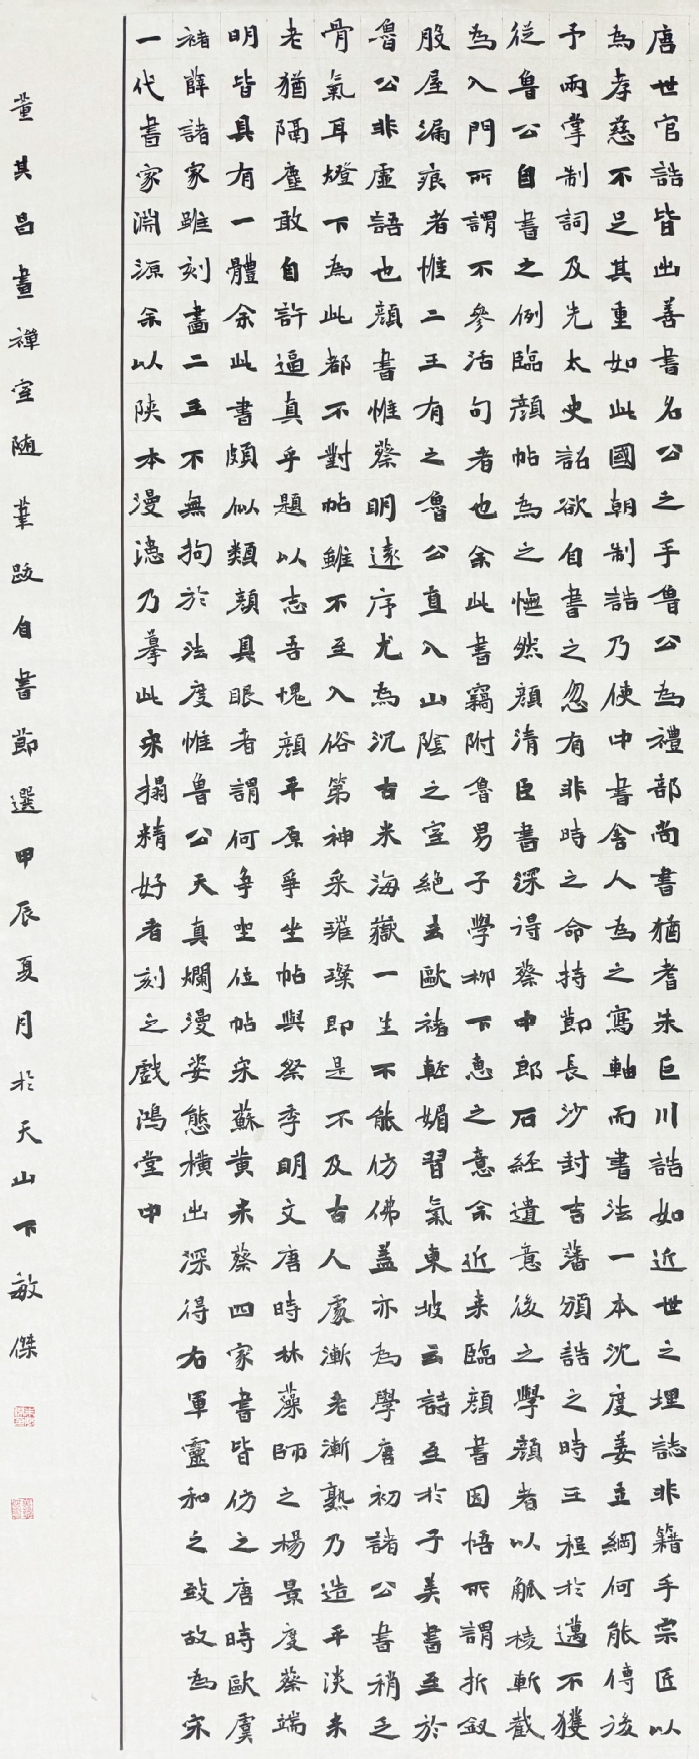 唐世官誥皆出善書名公之手魯公為禮部尚書猶耆朱巨川誥如近世之埋誌非籍手宗匠以
為孝慈不足其重如此國朝制誥乃使中書舍人為之寫軸而書法一本沈度姜立綱何能傳後
予兩掌制詞及先太史詔欲自書之忽有非時之命持節長沙封吉藩頒誥之時王程於邁不獲
從魯公自書之例臨顏帖為之憮然顏清臣書深得蔡中郎石經遺意後之學顏者以觚稜斬截
為入門所謂不參活句者也余此書竊附魯男子學柳下惠之意余近來臨顏書因悟所謂折釵
股屋漏痕者惟二王有之魯公直入山陰之室絕去歐褚輕媚習氣東坡云詩至於子美書至於
魯公非虛語也顏書惟蔡明遠序尤為沉古米海嶽一生不能仿佛蓋亦為學唐初諸公書稍乏
骨氣耳燈下為此都不對帖雖不至入俗第神采璀璨即是不及古人處漸老漸熟乃造平淡未
老猶隔塵敢自許逼真乎題以志吾愧顏平原爭坐帖與祭季明文唐時林藻師之楊景度蔡端
明皆具有一體余此書頗似類顏具眼者謂何爭坐位帖宋蘇黄米蔡四家書皆仿之唐時歐虞
褚薛諸家雖刻畫二王不無拘於法度惟魯公天真爛漫姿態橫出深得右軍靈和之致故為宋
一代書家淵源余以陝本漫漶乃摹此宋搨精好者刻之戲鴻堂中
董其昌畫禪室隨筆跋自書節選甲辰夏月於天山下敏傑